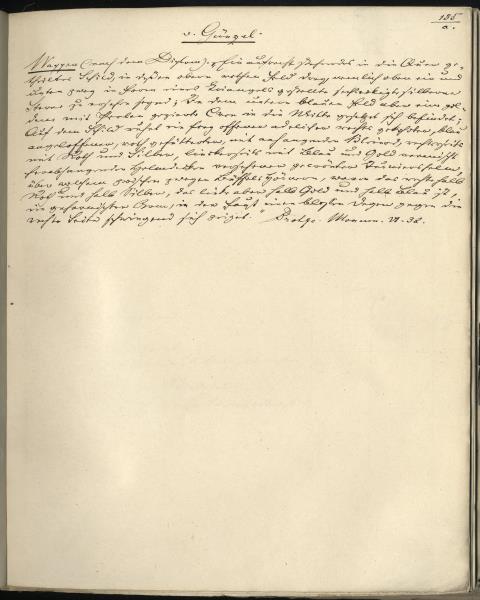 185
a.
v. Günzel.
Wappen (nach dem Diplom): „Ein aufrecht stehendes in die Quer ge-
theiltes Schild, in dessen obern rothen Feld drey, nemlich oben ein und
unten zwey in Form eines Triangels gestellte sechseckigte silberne
Sterne zu ersehen seynd; In dem untern blauen Feld aber eine gol-
dene mit Perlen gezierte Cron in die Mitte gesetzt sich befindet;
Auf dem Schild ruhet ein frey offener adelicher rechts gekehrter, blau
angeloffener, roth gefütterter, mit anhangenden Kleinod, rechterseits
mit Roth und Silber, linkerseits mit Blau und Gold vermischt
herabhangenden Helmdecken gecrönter Turniershelm,
über welchem zwischen zweyen Büffels Hörnern, wovon das rechte halb
Roth und halb Silber, das linke aber halb Gold und halb Blau ist,
ein geharnischter Arm, in der Faust einen blossen Degen gegen die
rechte Seite schwingend sich zeiget."